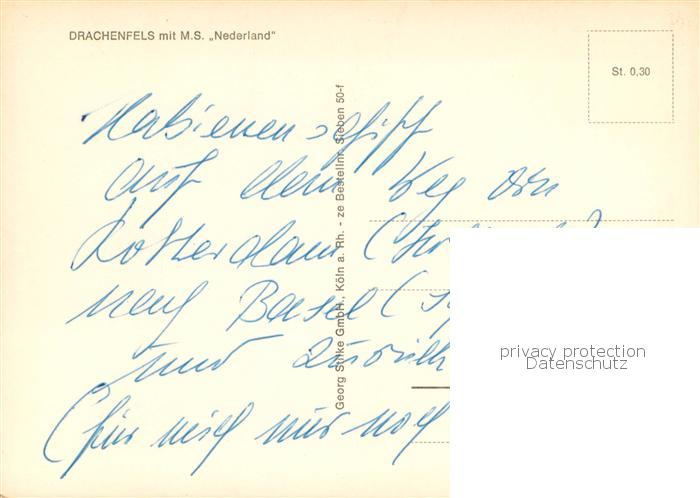 DRACHENFELS mit M.S. „Nederland"
St. 0,30
Kabienenschiff
auf dem Weg von
Rotterdam (
nach Basel (
und zurück
(für mich nur noch
Georg Stilke GmbH., Köln a. Rh. - ze Bestellnr. Sieben 50-f
privacy protection
Datenschutz